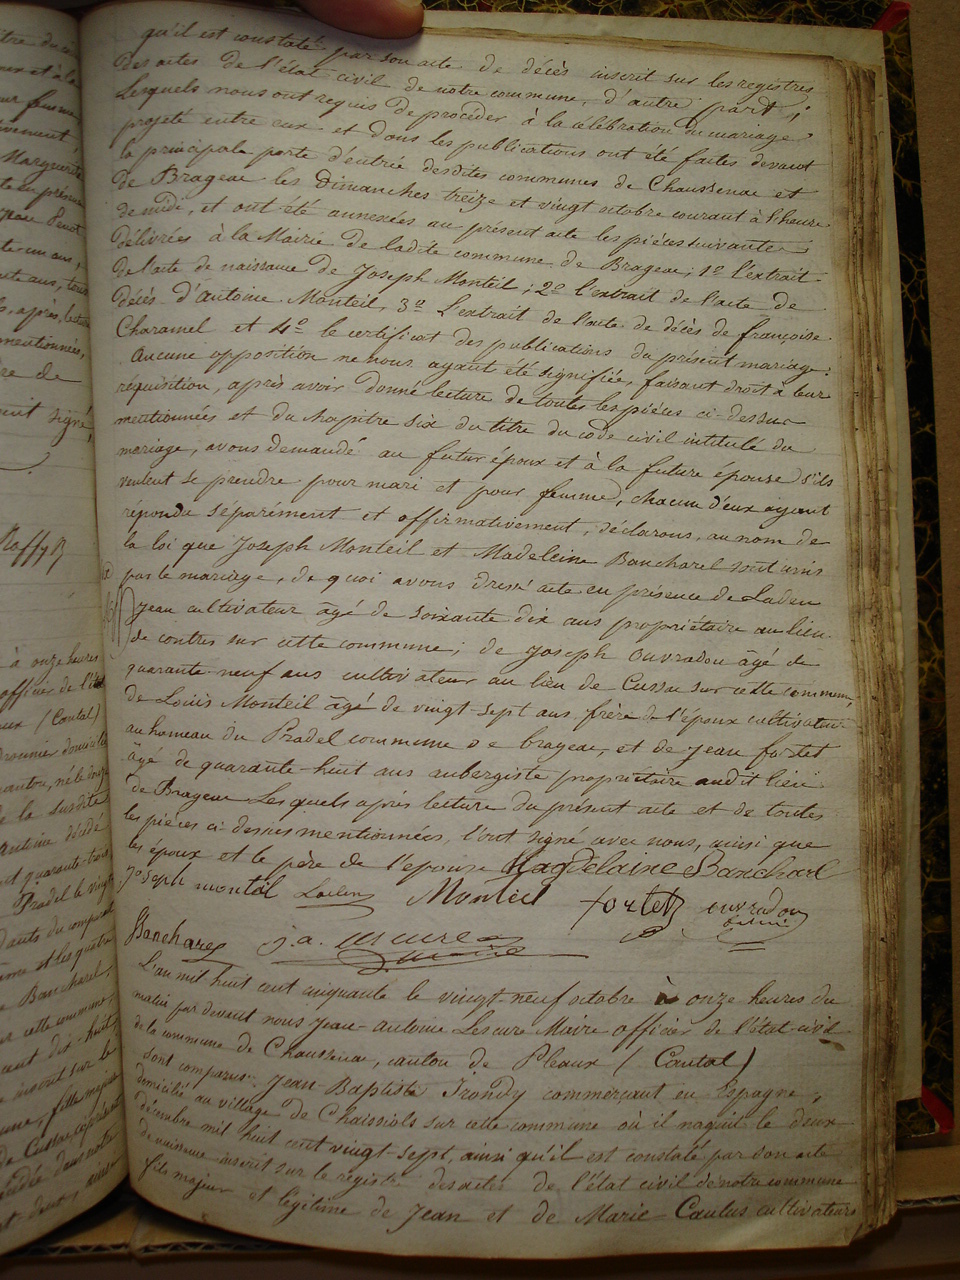 qu'il est constaté par son acte de décès inscrit sur les registres
des actes de l'état civil de notre commune, d'autre part ;
Lesquels nous ont requis de procéder à la célébration du mariage
projeté entre eux et dont les publications ont été faites devant
la principale porte d'entrée desdites communes de Chaussenac et
de Brageac les Dimanches treize et vingt octobre courant à l'heure
de midi, et ont été annexées au présent acte les pièces suivantes
délivrées à la Mairie de ladite commune de Brageac ; 1º l'extrait
de l'acte de naissance de Joseph Monteil ; 2º l'extrait de l'acte de
décès d'antoine Monteil, 3º L'extrait de l'acte de décès de françoise
Charamel et 4º le certificat des publications du présent mariage.
Aucune opposition ne nous ayant été signifiée, faisant droit à leur
réquisition, après avoir donné lecture de toutes les pièces ci-dessus
mentionnées et du chapitre six du titre du code civil intitulé du
mariage, avons demandé au futur époux et à la future épouse s'ils
veulent se prendre pour mari et pour femme, chacun d'eux ayant
répondu séparément et affirmativement, déclarons, au nom de
la loi que Joseph Monteil et Madeleine Bancharel sont unis
par le mariage, de quoi avons dressé acte en présence de Laden
jean cultivateur âgé de soixante dix ans propriétaire au lieu
de contres sur cette commune, de Joseph Ouvradou âgé de
quarante neuf ans cultivateur au lieu de Cussac sur cette commune,
de Louis Monteil âgé de vingt-sept ans, frère de l'époux cultivateur
au hameau du Pradel commune de brageac, et de jean fortet
âgé de quarante-huit ans aubergiste propriétaire audit lieu
de Brageac Lesquels après lecture du présent acte et de toutes
les pièces ci-dessus mentionnées, l'ont signé avec nous, ainsi que
les époux et le père de l'épouse Magdelaine Bancharel
Joseph monteil Laden Monteil fortet ouvradou
Bancharel j. a. Lescure
maire
L'an mil huit cent cinquante le vingt-neuf octobre à onze heures du
matin par devant nous Jean-antoine Lescure Maire officier de l'état-civil
de la commune de Chaussenac, canton de Pleaux (Cantal)
sont comparus Jean Baptiste Trondy commerçant en Espagne,
domicilié au village de Chaissiols sur cette commune où il naquit le deux
décembre mil huit cent vingt-sept, ainsi qu'il est constaté par son acte
de naissance inscrit sur le registre des actes de l'état civil de notre commune
fils majeur et légitime de Jean et de Marie Caulus cultivateurs